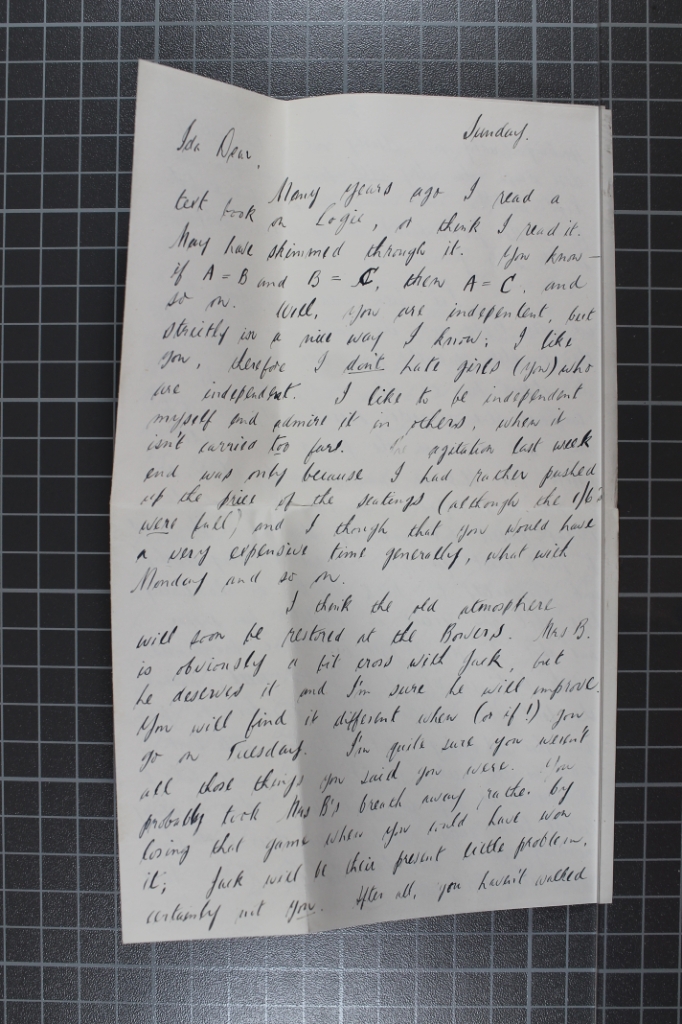 Sunday.
Ida Dear,
Many years ago I read a
text book on Logic, or think I read it.
May have skimmed through it. You know –
if A = B and B = C, then A = C, and
so on. Well, you are independent, but
strictly in a nice way I know; I like
you, therefore I don't hate girls (yw) who
are independent. I like to be independent
myself and admire it in others, when it
isn't carried too far. agitation last week
end was only because I had rather pushed
up the price of the seatings (although the 1/6's
were full) and I though that you would have
a very expensive time generally, what with
Monday and so on.
I think the old atmosphere
will soon be restored at the Bowers. Mrs B.
is obviously a bit cross with Jack, but
he deserves it and I'm sure he will improve.
You will find it different when (or if!) you
go on Tuesday. I'm quite sure you weren't
all those things you said you were. You
probably took Mrs B's breath away rather by
losing that game when you could have won
it; Jack will be their present little problem,
certainly not you. After all, you haven't walked